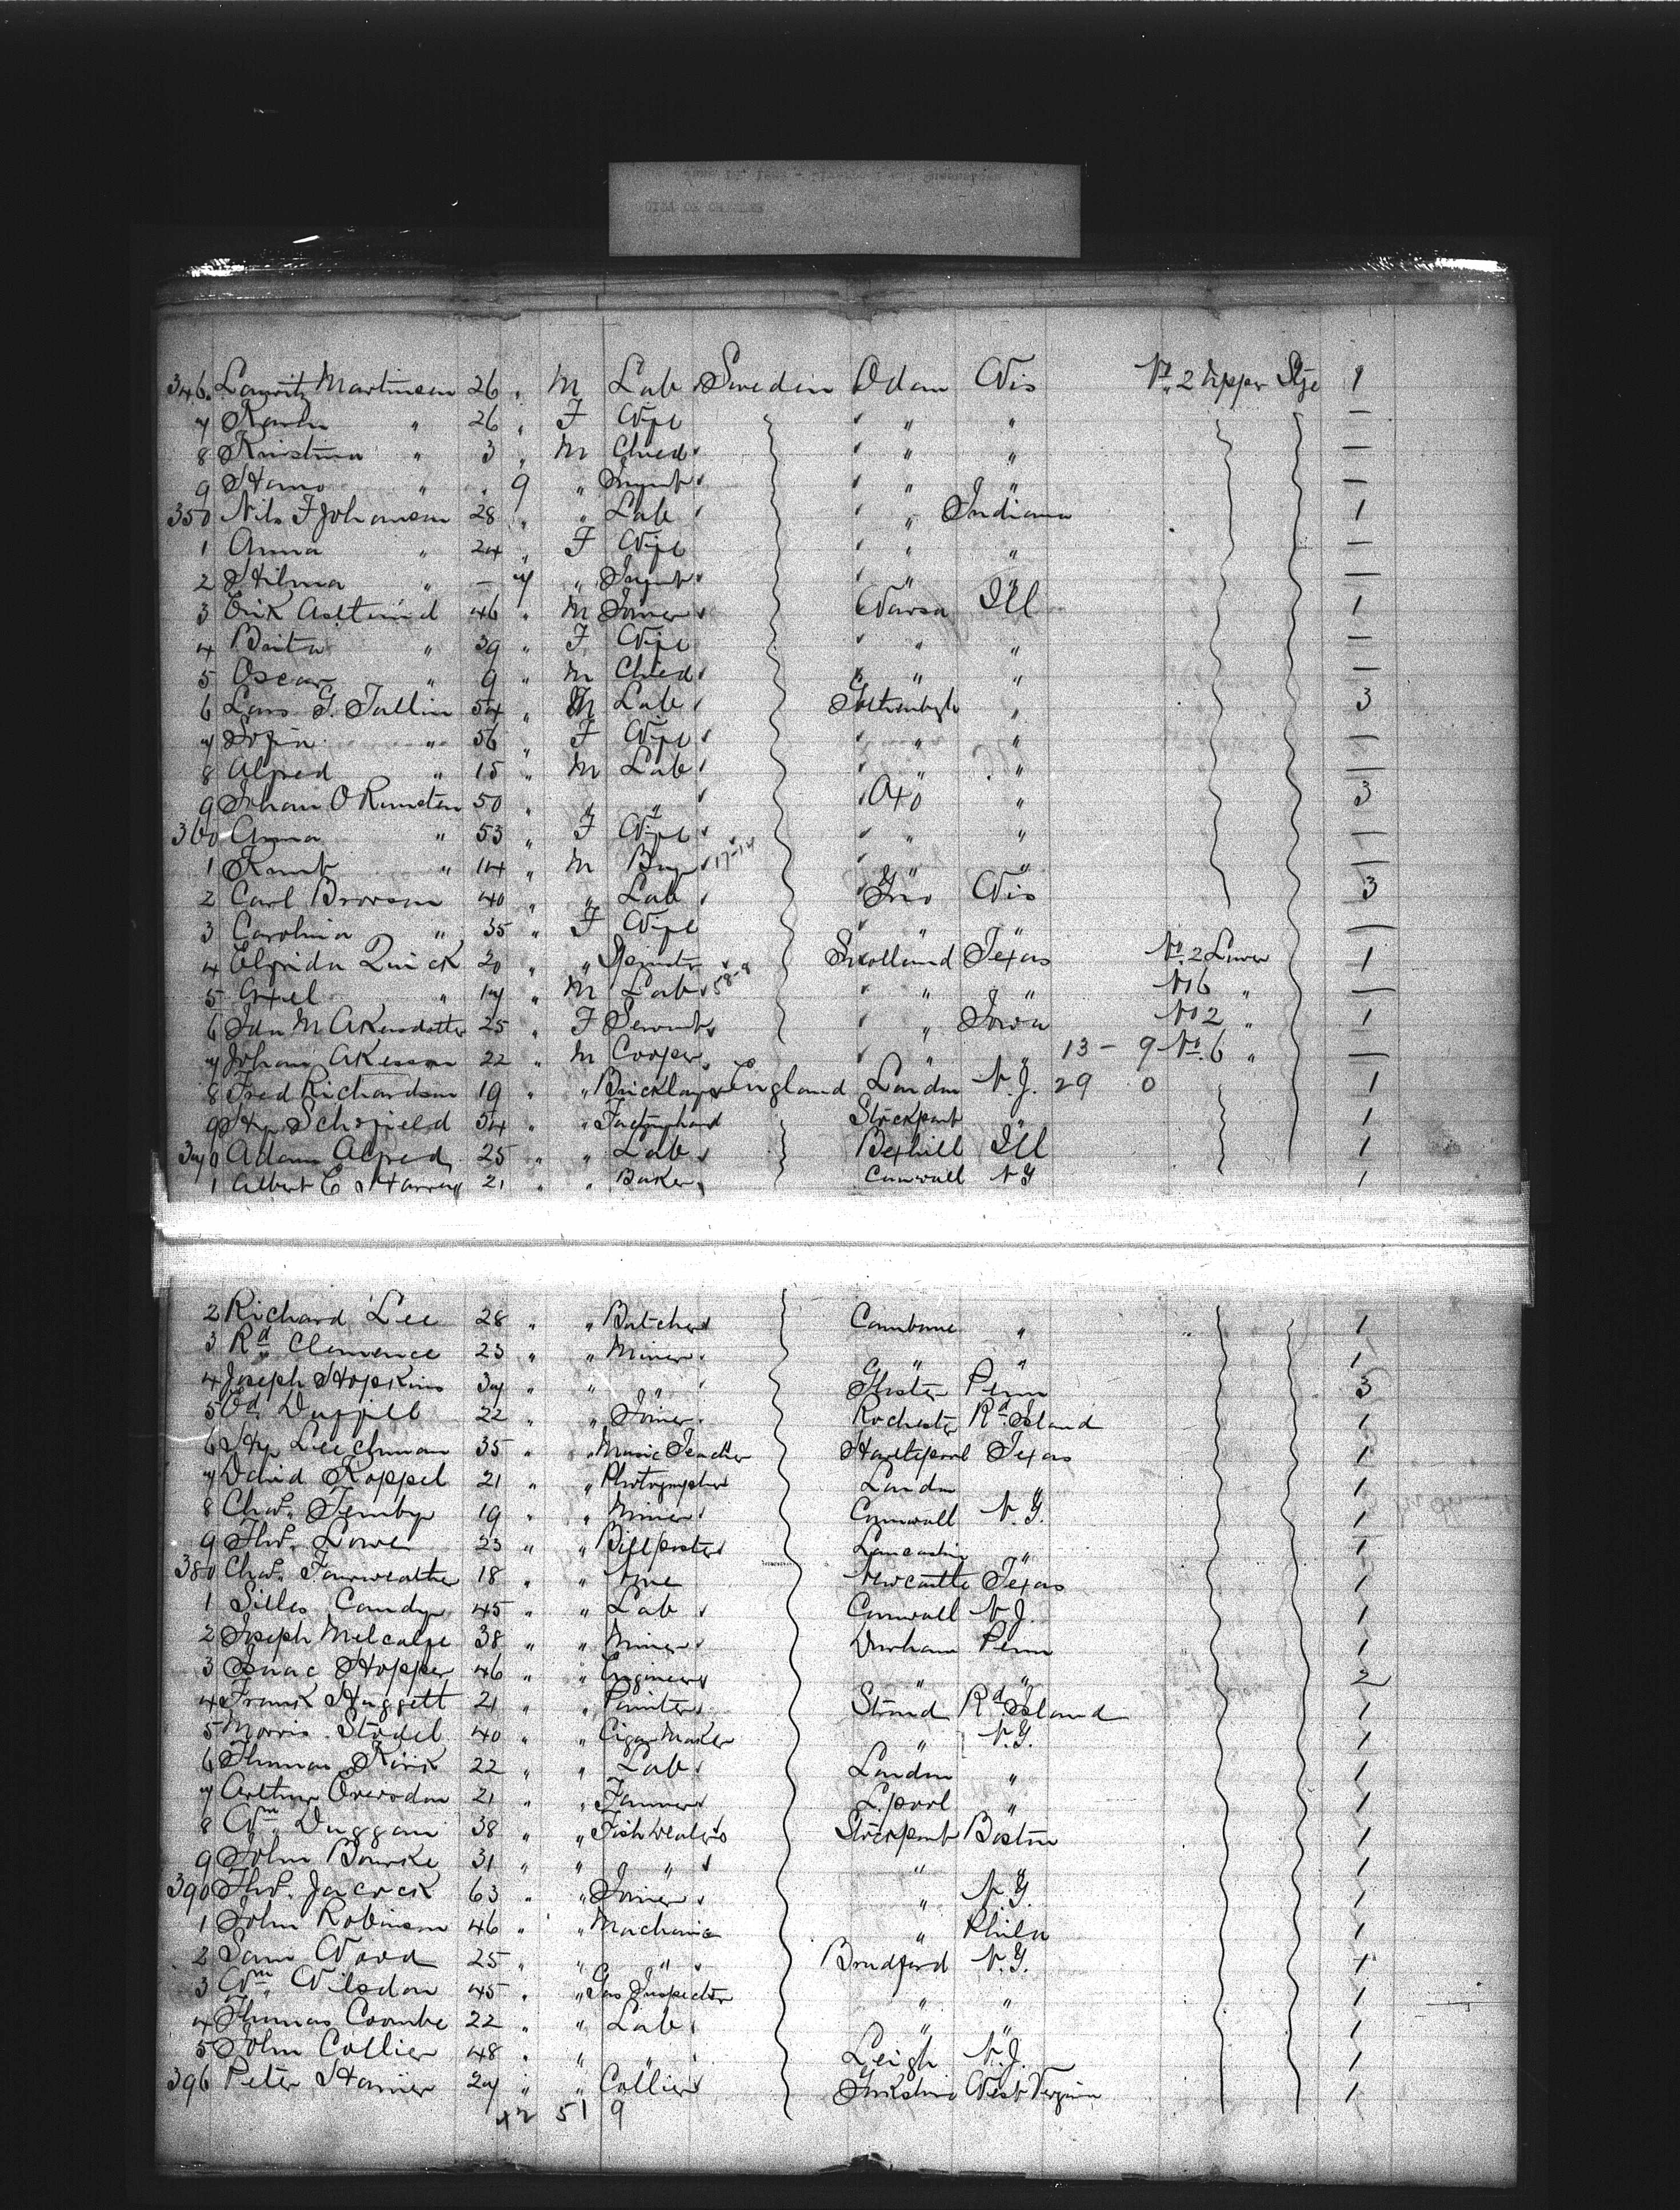 CITY OF CHESTER
346 Lauritz Martinsen 26 " M Lab Sweden Odam Wis No 2 Upper Stge 1
7 Karen " 26 " F Wife " " " —
8 Kristina " 3 " M Child " " —
9 Hans " " 9 " Infnt " " —
350 Nils F Johanson 28 " " Lab " Indiana 1
1 Anna " 24 " F Wife " " —
2 Hilma " — 7 " Infnt " " —
3 Erik 46 " M Joiner Warsa Ill 1
4 Brita " 39 " F Wife " " —
5 Oscar " 9 " M Child " " —
6 Lars G. Tallin 54 " M Lab Gothenbgh " 3
7 Sofia " 56 " F Wife " " —
8 Alfred " 15 " M Lab " " —
9 Johan O 50 " " " " 3
360 Anna " 53 " F Wife " " —
1 Knut " 14 " M Boy 17-14 " " —
2 Carl 40 " " Lab Wis 3
3 Carolina " 35 " F Wife " " —
4 Elfrida Quick 20 " " Smolland Texas No 2 Lower 1
5 Axel " 17 " M Lab " " No 6 " —
6 25 " F Servnt " Iowa No 2 " 1
7 Johan Akesson 22 " M Cooper " " 13 - 9 No 6 " —
8 Fred Richardson 19 " " Bricklayer England London N.J. 29 0 1
9 Hy Schofield 54 " " Factryhand Stockport " 1
370 Adam Alfred 25 " " Lab Bexhill Ill 1
1 Albert E Harvey 21 " " Baker Cornwall N Y 1
2 Richard Lee 28 " " Butcher Camborne " 1
3 Rd Clemence 23 " " Miner " " 1
4 Joseph Hopkins 37 " " " Penn 3
5 Ed. Duffill 22 " " Joiner Rochester Rd Island 1
6 Hy Leechman 35 " " Music Teacher Hartlepool Texas 1
7 David Koppel 21 " " Photographer London " 1
8 Chas. Temby 19 " " Miner Cornwall N.Y. 1
9 Thos. Lowe 23 " " Billposter Lancashire " 1
380 Chas. Fairweather 18 " " None Newcastle Texas 1
1 Silles Candy 45 " " Lab Cornwall N.J. 1
2 Joseph Metcalfe 38 " " Miner Durham Penn 1
3 Isaac Hopper 46 " " Engineer " " 2
4 Frank Huggett 21 " " Painter Strand Rd Island 1
5 Morris Stodel 40 " " Cigar Maker " N.Y. 1
6 Thomas Kirk 22 " " Lab London " 1
7 Arthur 21 " " L.pool " 1
8 Wm Duggan 38 " " Fish Dealers Stockport Boston 1
9 John Bourke 31 " " " " 1
390 Thos. Jacock 63 " " Joiner " N.Y. 1
1 John Robinson 46 " " Machanic " Phila 1
2 Sam Wood 25 " " " Bradford N.Y. 1
3 Wm Wilsdon 45 " " Gas Inspector " " 1
4 Thomas Coombe 22 " " Lab " " 1
5 John Collier 48 " " " Leigh N.J. 1
396 Peter 27 " " Collier Yorkshire West Virginia 1
42 51 9